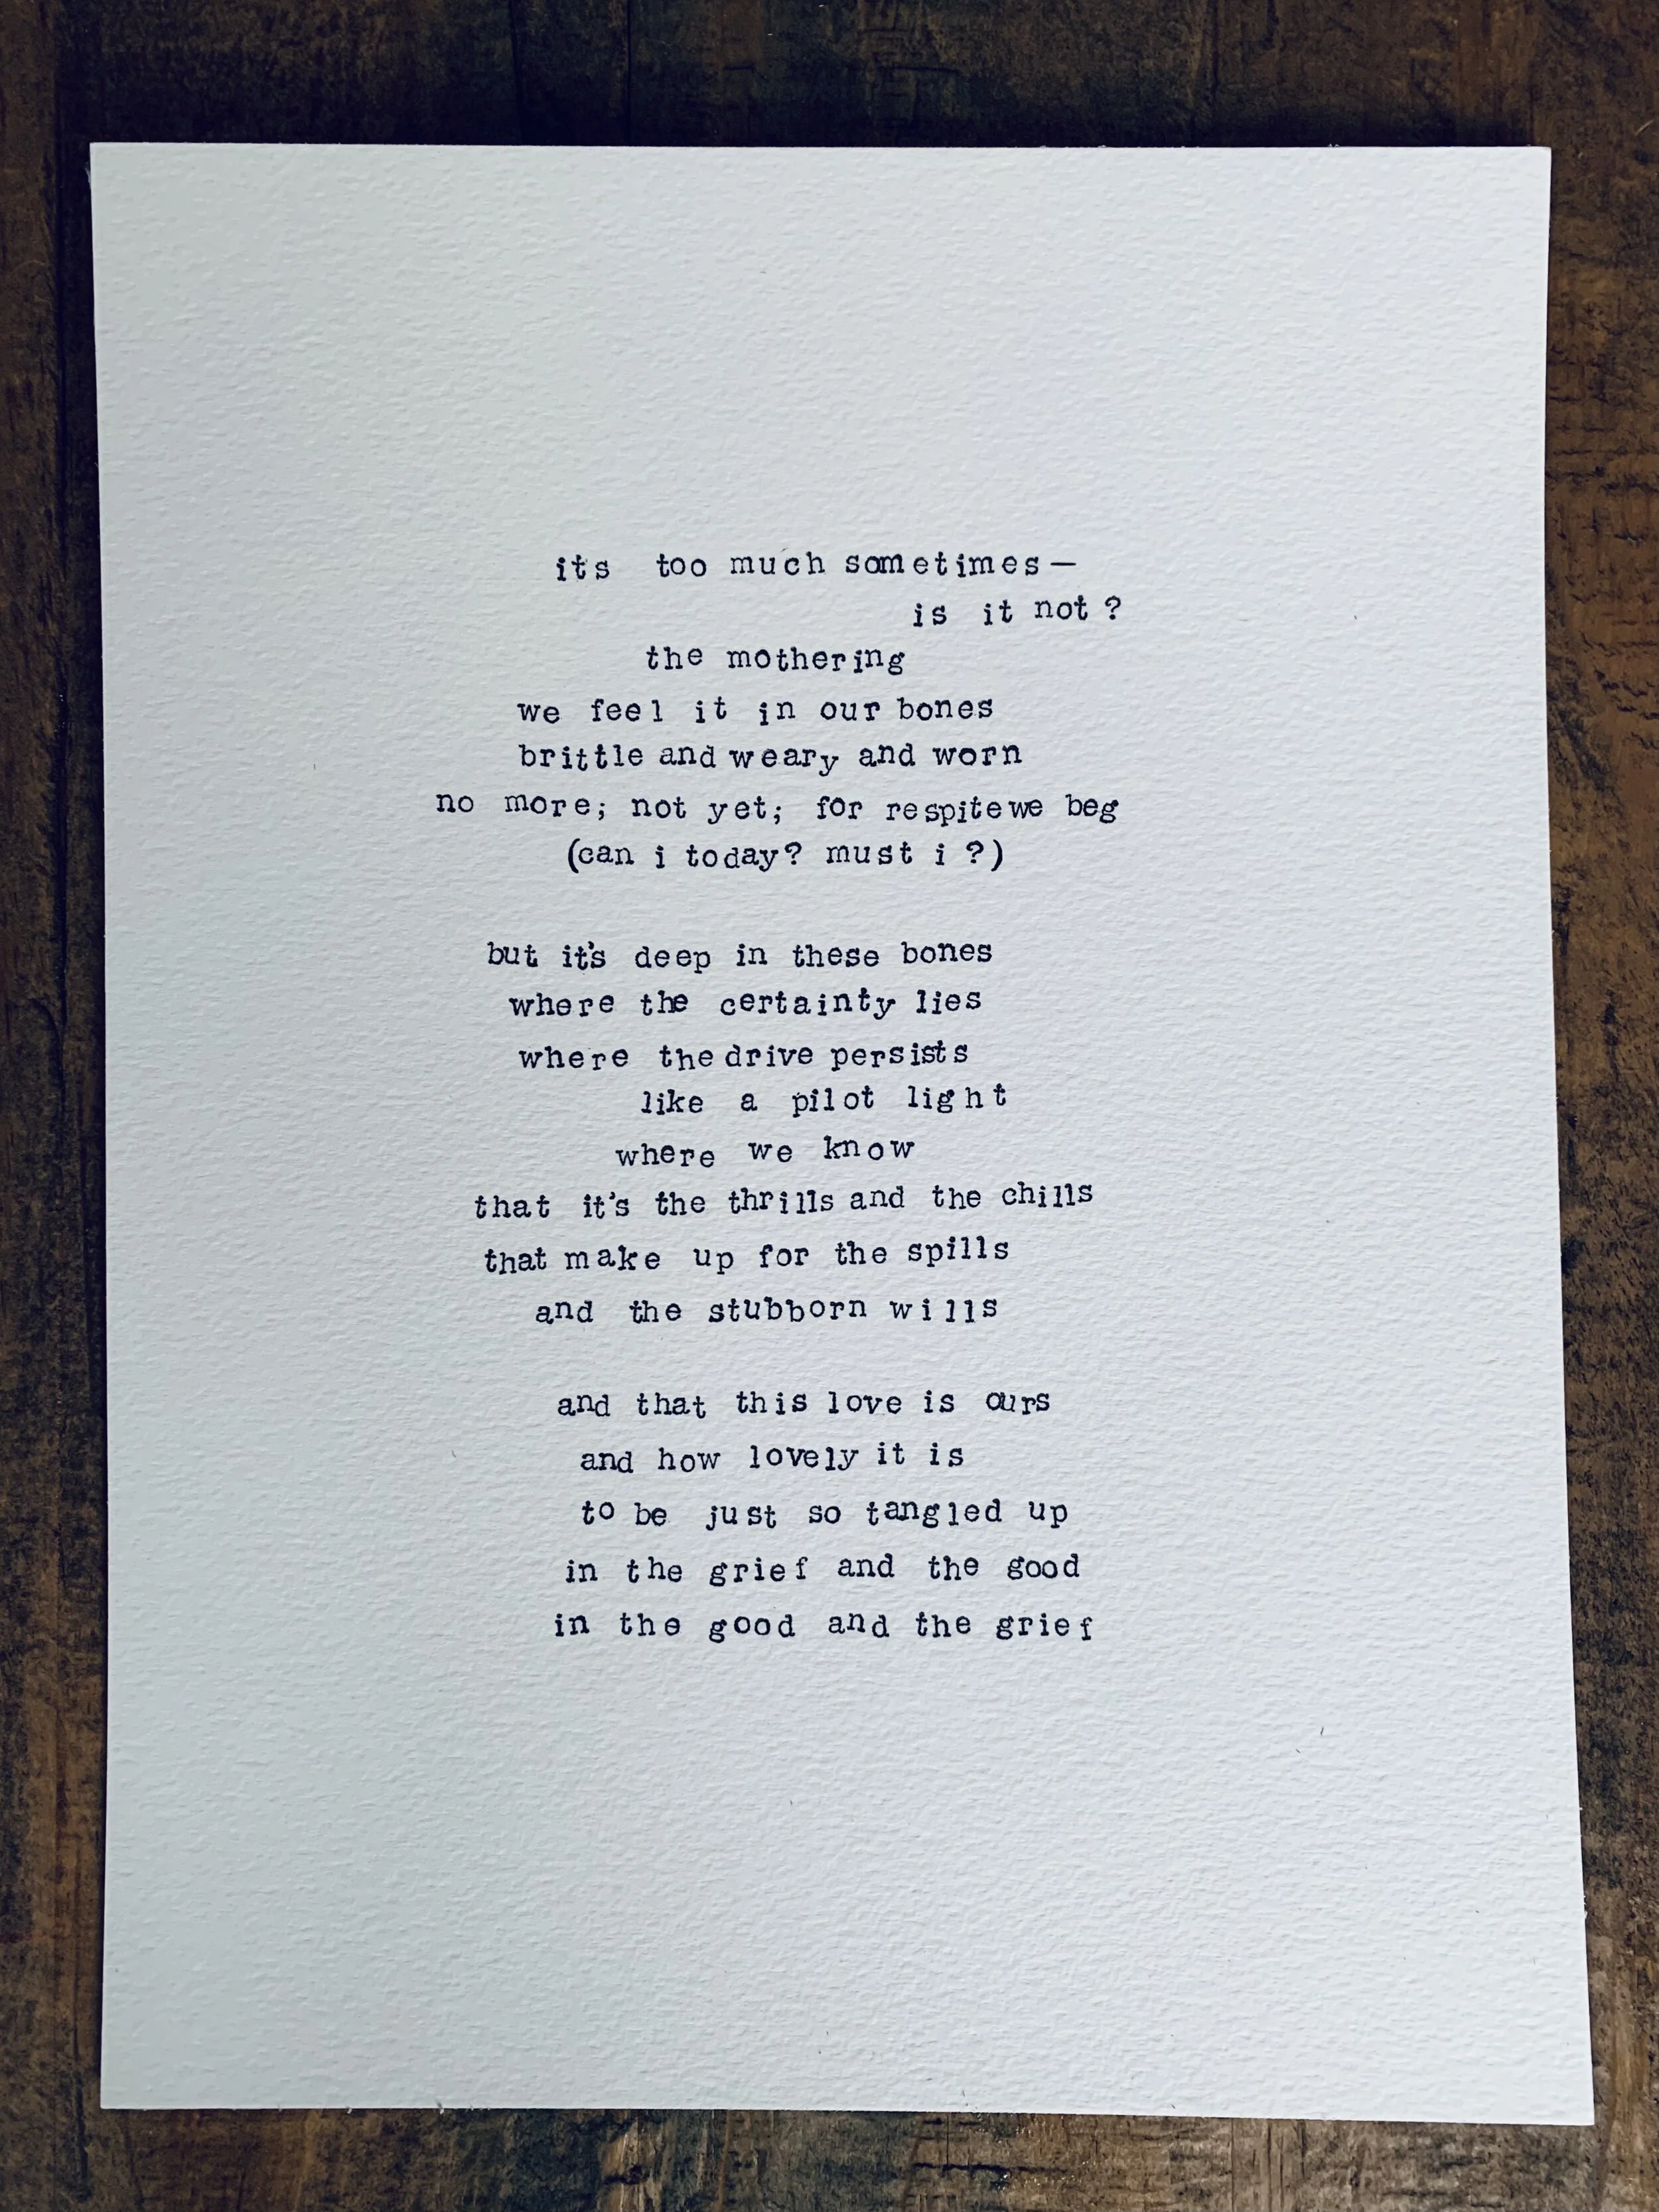 it's too much sometimes—
is it not?
the mothering
we feel it in our bones
brittle and weary and worn
no more; not yet; for respite we beg
(can i today? must i?)
but it's deep in these bones
where the certainty lies
where the drive persists
like a pilot light
where we know
that it's the thrills and the chills
that make up for the spills
and the stubborn wills
and that this love is ours
and how lovely it is
to be just so tangled up
in the grief and the good
in the good and the grief